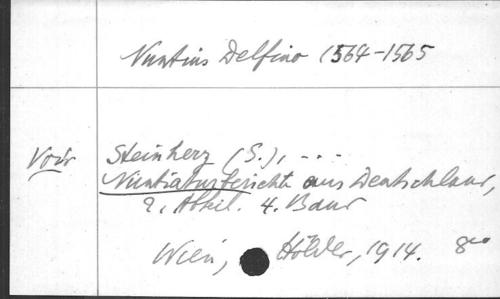 Nuntius Delfino 1564-1565
Voir Steinherz (S.), ...
Nuntiaturberichte aus Deutschland,
2. Abteil. 4. Band
Wien, Hölder, 1914. 8vo